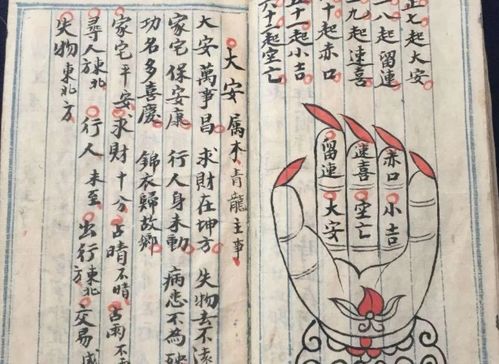 正七起大安
八起留連
九起速喜
十起赤口
五十起小吉
六十二起空亡
赤口 小吉
速喜 空亡
留連 大安
大安 属木青龍主事
大安萬事昌 求財在坤方 失物去不遠
家宅保安康 行人身未動 病患不為殃
功名多喜慶 錦衣歸故鄉
家宅平安求財十分占晴不晴占雨不
尋人東北 行人未至 出行東北方 交易成
失物東北方